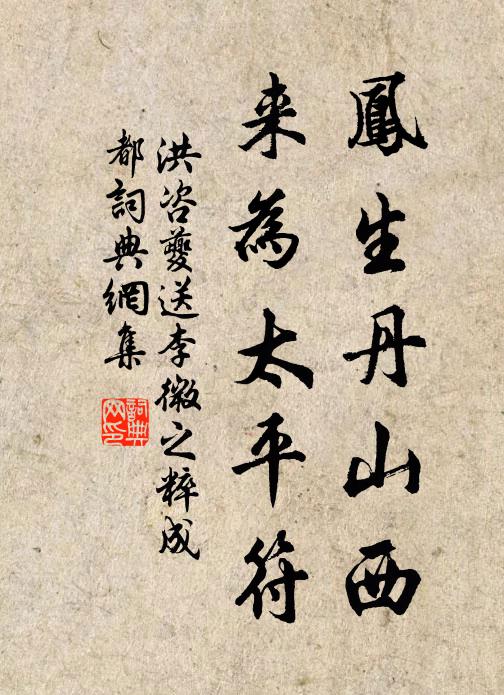 鳳生丹山西
来為太平符
洪咨夔送李微之粹成
都詞典網集
詞典网印